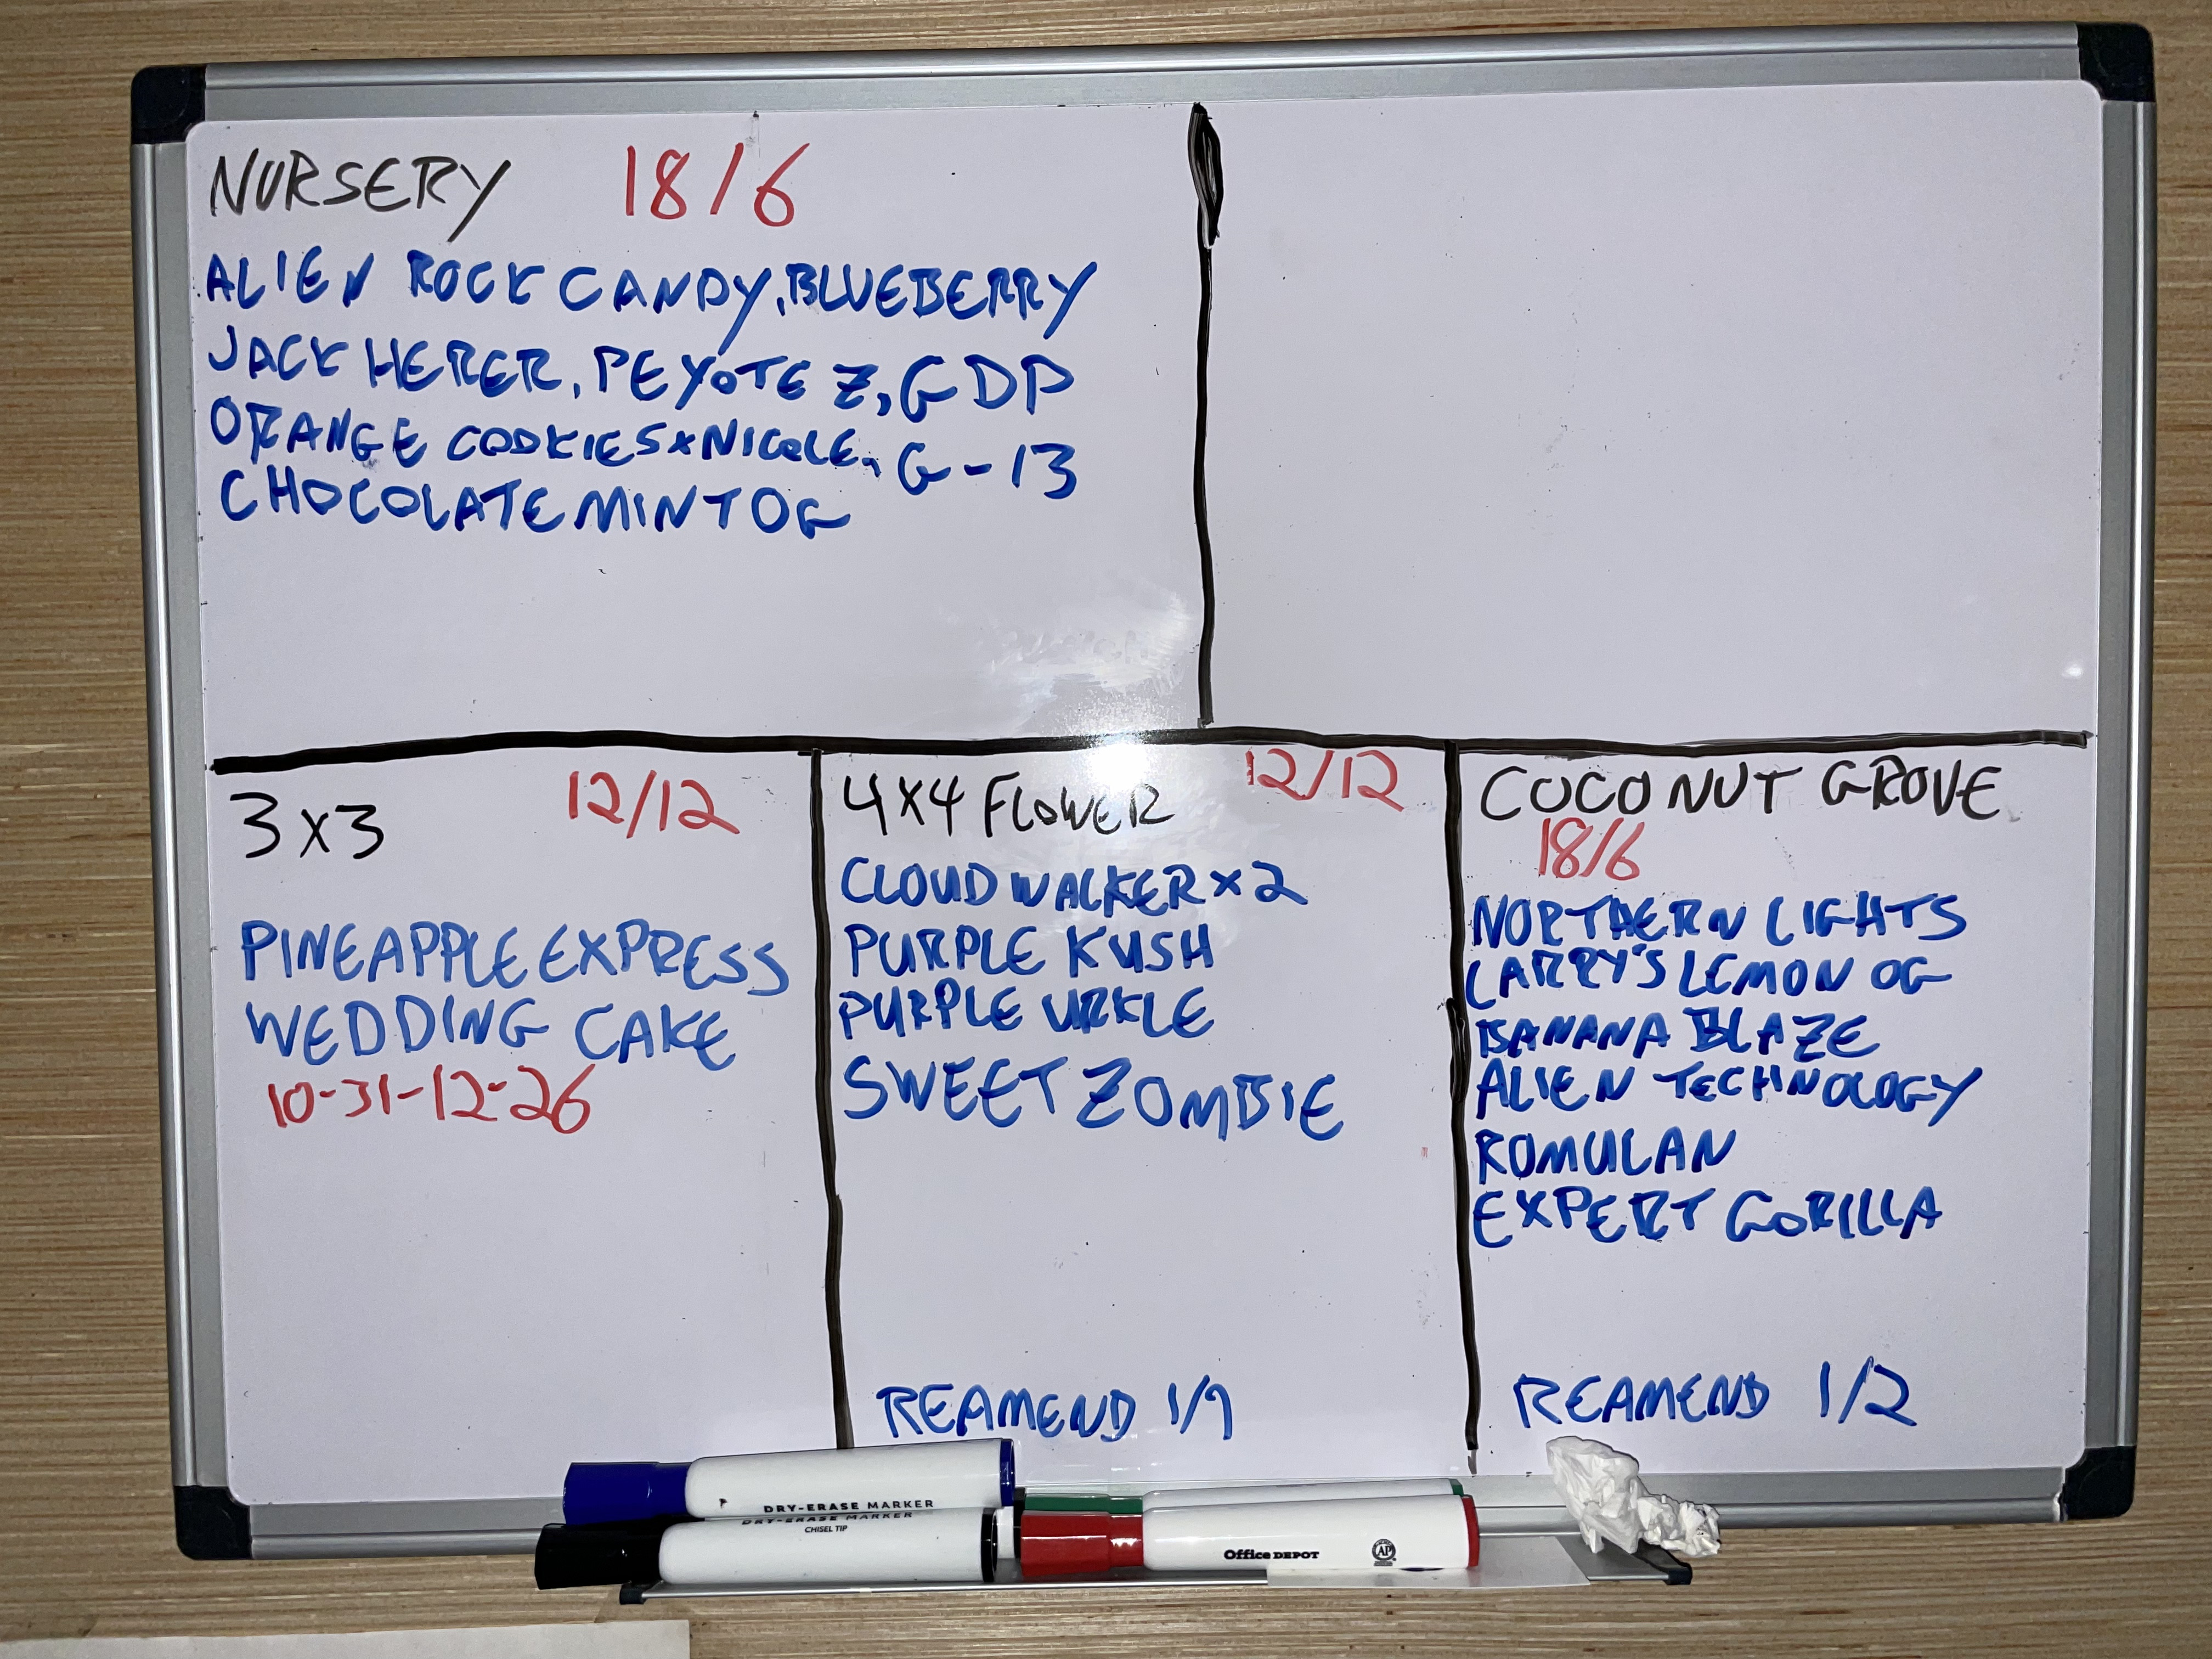 NURSERY 18/6
ALIEN ROCK CANDY, BLUEBERRY
JACK HERER, PEYOTE Z, GDP
ORANGE COOKIES x NICOLE, G-13
CHOCOLATE MINT OG
3x3 12/12
PINEAPPLE EXPRESS
WEDDING CAKE
10-31-12-26
4x4 FLOWER 12/12
CLOUD WALKER x 2
PURPLE KUSH
PURPLE URKLE
SWEET ZOMBIE
REAMEND 1/9
COCONUT GROVE
18/6
NORTHERN LIGHTS
LARRY'S LEMON OG
BANANA BLAZE
ALIEN TECHNOLOGY
ROMULAN
EXPERT GORILLA
REAMEND 1/2
DRY-ERASE MARKER
DRY-ERASE MARKER
CHISEL TIP
Office DEPOT
AP